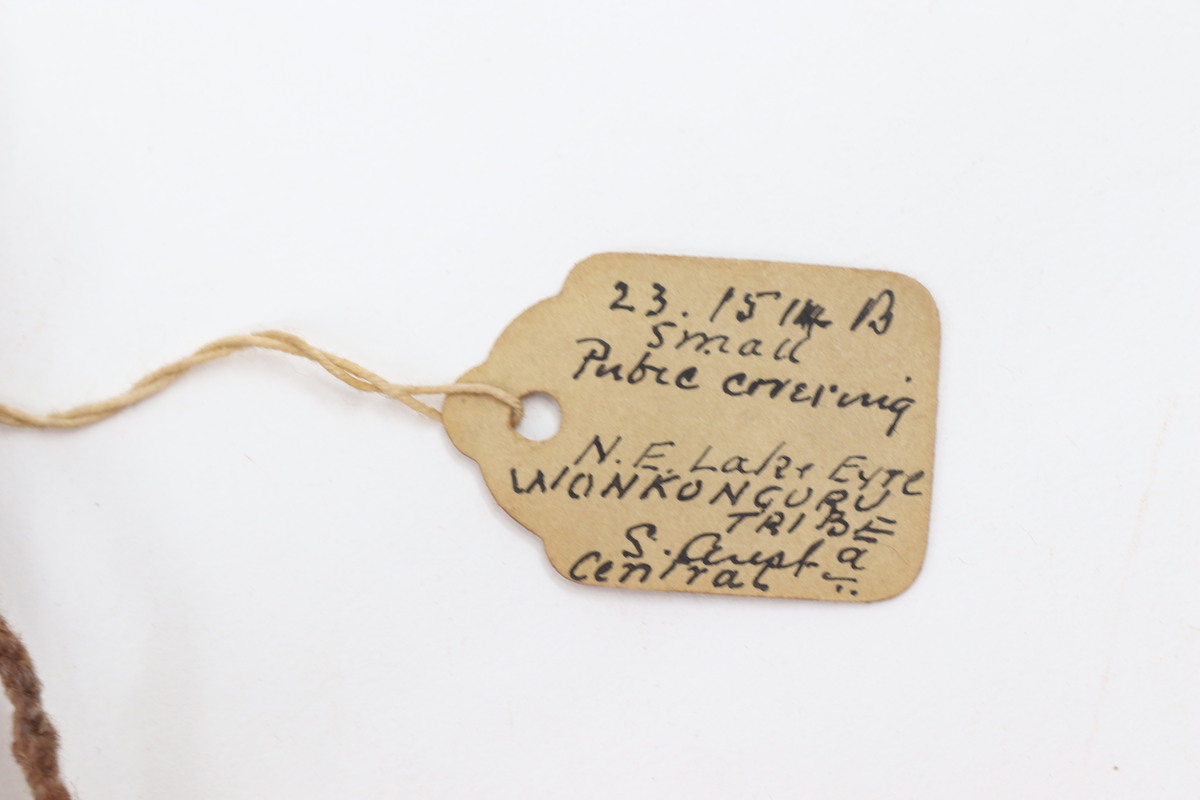 23. 151 B
Small
Pubic covering
N.E. Lake Eyre
WONKONGURU
TRIBE
S. Aust a
Central